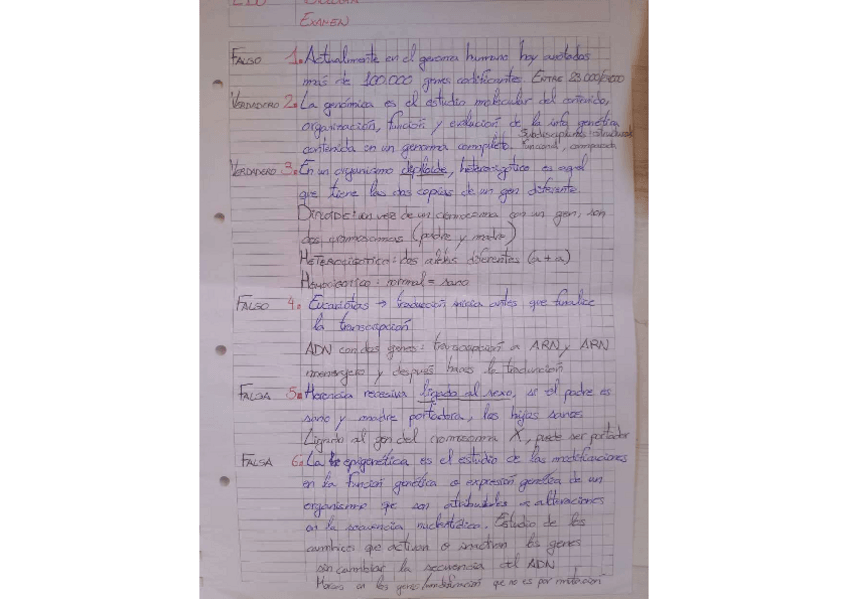 EXAMEN
FALSO 1. Actualmente en el genoma humano hay anotados
más de 100.000 genes codificantes. ENTRE
VERDADERO 2. La genómica es el estudio molecular del contenido,
organización, función y evolución de la info genética
contenida en un genoma completo. Subdisciplinas: structural
funcional, comparada
VERDADERO 3. En un organismo diploide, heterozigótico es aquel
que tiene las dos copias de un gen diferente.
DIPLOIDE: un vez de un cromosoma con un gen, son
dos cromosomas (padre y madre)
HETEROZIGOTICO: dos alelos diferentes (a + a)
HOMOCIGOTICO: normal = sano
FALSO 4. Eucariotas → traducción inicia antes que finalice
la transcripción
ADN con dos genes: transcripción a ARN y ARN
mensajero y después haces la traducción
FALSA 5. Herencia recesiva ligada al sexo, si el padre es
sano y madre portadora, las hijas sanas
Ligado al gen del cromosoma X, puede ser portador
FALSA 6. La epigenética es el estudio de las modificaciones
en la función genética o expresión genética de un
organismo que son atribuibles a alteraciones
en la secuencia nucleotídica. Estudio de los
cambios que activan o inactivan los genes
sin cambiar la secuencia del ADN
en los genes/modificación que no es por mutación